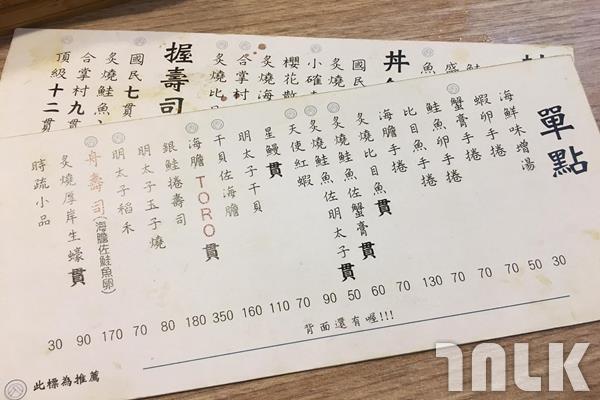 單點
海鮮味增湯
蝦卵手捲
蟹膏手捲
鮭魚卵手捲
比目魚手捲
海膽手捲
炙燒比目魚貫
炙燒鮭魚佐蟹膏貫
炙燒鮭魚佐明太子貫
天使紅蝦
星鰻貫
明太子干貝
干貝佐海膽
海膽TORO貫
銀鮭捲壽司
明太子玉子燒
明太子稻禾
舟壽司(海膽佐鮭魚卵)
炙燒厚岸生蠔貫
時疏小品
30 90 170 70 80 180 350 160 110 70 90 50 60 70 130 70 70 70 50 30
背面還有喔!!!
此標為推薦
丼
國民
炙燒
小確
櫻花散
炙燒海
合掌村
握壽司
國民七貫
炙燒鮭魚
合掌村九貫
頂級十二貫